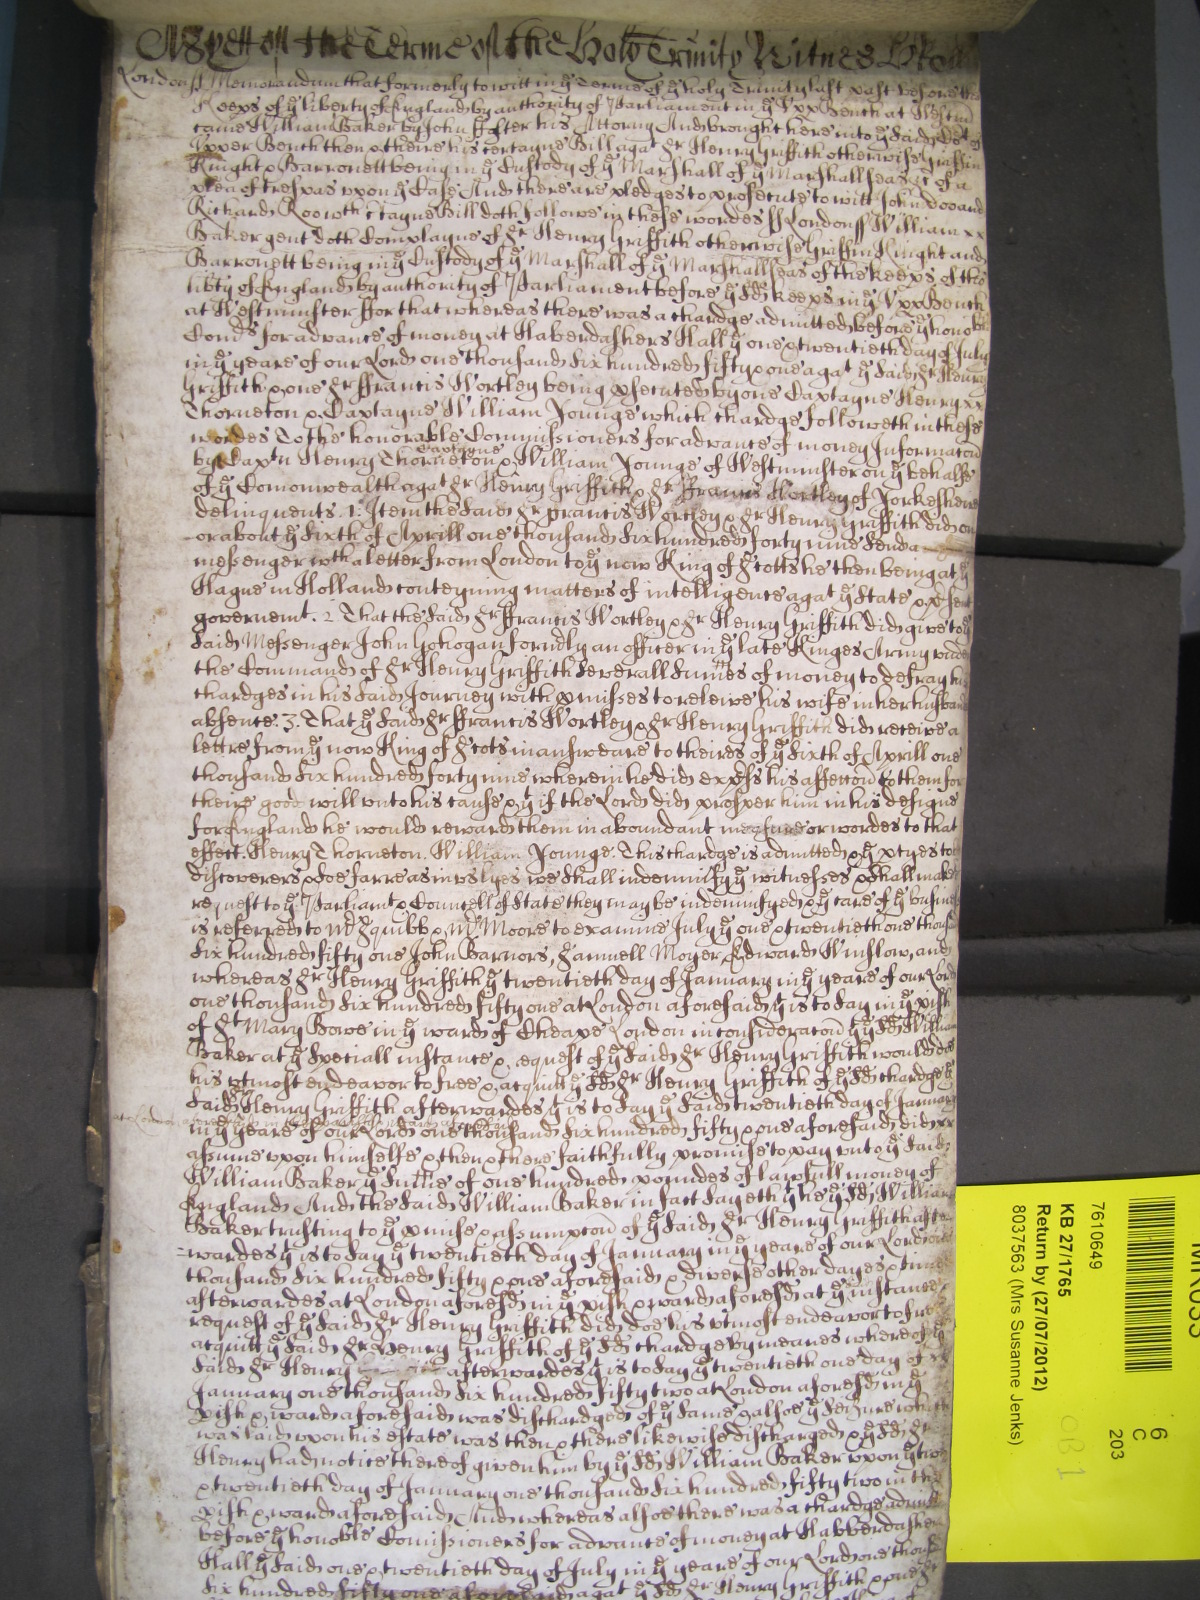 As yett of the Terme of the Holy Trinity Witnes H Rolle
London ss Memorandum that formerly to witt in ye Terme of ye holy Trinity last past before the
Keeps of ye liberty of England by authority of Parliament in ye Vpp Bench at Westm
came William Baker by John ffoster his Attorny And brought here into ye said Court of
Vpper Bench then & there his certayne Bill agat Sr Henry Griffith otherwise Griffin
Knight & Barronett being in ye Custody of ye Marshall of ye Marshallseas &c of a
plea of trespas vpon ye Case And there are pledges to prosecute to witt John Doo and
Richard Roo wch c'tayne Bill doth followe in these wordes ss London ss William
Baker gent doth Complayne of Sr Henry Griffith otherwise Griffin Knight and
Barronett being in ye Custody of ye Marshall of ye Marshallseas of the keeps of the
lib'ty of England by authority of Parliament before ye sd keeps in ye Vpp Bench
at Westminster ffor that whereas there was a chardge admitted before ye honoble
Com's for advance of money at Haberdashers Hall ye one & twentieth day of July
in ye yeare of our Lord one thousand six hundred fifty & one agat ye said Sr Henry
Griffith & one Sr ffrancis Wortley being p'secuted by one Captayne Henry
Thorneton & Captayne William Younge which chardge followeth in these
wordes To the honorable Commissioners for advance of money Informacon
by Capt'n Henry Thorneton & Captayne William Younge of Westminster on ye behalfe
of ye Comonwealth agat Sr Henry Griffith & Sr ffrancis Wortley of Yorkeshire
delinquents. 1. Item the said Sr ffrancis Wortley & Sr Henry Griffith did on
or about ye sixth of Aprill one thousand six hundred forty nine send a
messenger wth a letter from London to ye now King of Scotts he then being at ye
Hague in Holland conteyning matters of intelligence agat ye State & p'sent
goverment. 2 That the said Sr ffrancis Wortley & Sr Henry Griffith did give to ye
said Messenger John Gohogan form'ly an officer in ye late Kinges Army vnder
the Command of Sr Henry Griffith severall summes of money to defray his
chardges in his said Journey with p'mises to releive his wife in her husbands
absence. 3. That ye said Sr ffrancis Wortley & Sr Henry Griffith did receive a
lettre from ye now King of Scots in answeare to theires of ye sixth of Aprill one
thousand six hundred forty nine wherein he did exp'ss his affeccon to them for
theire good will vnto his cause & yt if the Lord did prosper him in his designe
for England he would reward them in aboundant measure or wordes to that
effect. Henry Thorneton. William Younge. This chardge is admitted & ye p'tyes to
discoverers & soe farre as in vs lyes we shall indemnify ye witnesses & shall make
request to ye Parliamt & Councell of State they may be indemnifyed & ye care of ye busines
is referred to Mr Squibb & Mr Moore to examine July ye one & twentieth one thousand
six hundred fifty one John Barnors, Samuell Moyer, Edward Winslow, and
whereas Sr Henry Griffith ye twentieth day of January in ye yeare of our Lord
one thousand six hundred fifty one at London aforesaid yt is to say in ye p'ish
of St Mary Bowe in ye ward of Cheape London in consideracon yt ye sd William
Baker at ye speciall instance & request of ye said Sr Henry Griffith would doe
his vtmost endeavor to free & acquitt ye sd Sr Henry Griffith of ye sd chardge ye
said Sr Henry Griffith afterwardes yt is to say ye said twentieth day of January
in ye yeare of our Lord one thousand six hundred fifty & one aforesaid did
at London aforesaid in
assume vpon himselfe & then & there faithfully promise to pay vnto ye said
William Baker ye summe of one hundred poundes of lawfull money of
England And the said William Baker in fact sayeth yt he ye sd William
Baker trusting to ye p'mise & assumpcon of ye said Sr Henry Griffith after
wardes yt is to say ye twentieth day of January in ye yeare of our Lord one
thousand six hundred fifty & one aforesaid & diverse other dayes & times
afterwardes at London aforesd in ye p'ish & ward aforesd at ye instance &
request of ye said Sr Henry Griffith did doe his vtmost endeavor to free &
acquitt ye said Sr Henry Griffith of ye sd chardge by meanes whereof ye
said Sr Henry afterwardes yt is to say ye twentieth one day of
January one thousand six hundred fifty two at London aforesd in ye
p'ish & ward aforesaid was dischardged of ye same & alsoe ye seizure wch
was laid vpon his estate was then & there likewise dischardged & ye sd Sr
Henry had notice thereof given him by ye sd William Baker vpon ye two
& twentieth day of January one thousand six hundred fifty two in the
p'ish & ward aforesaid And whereas alsoe there was a chardge admitt
before ye honoble Comissioners for advance of money at Habberdashers
Hall ye said one & twentieth day of July in ye yeare of our Lord one thousand
six hundred fifty one aforesaid agat ye sd Sr Henry Griffith & one Sr
7610649
KB 27/1765
Return by (27/07/2012)
8037563 (Mrs Susanne Jenks)
6
C
203
OB 1